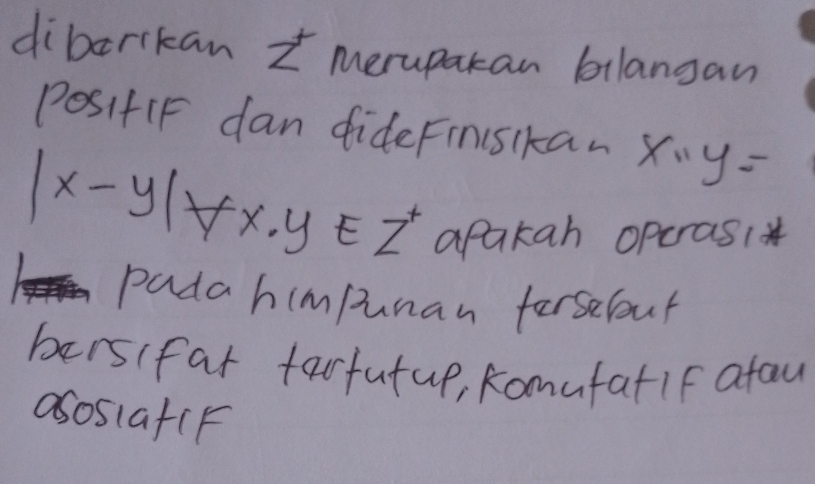 diberikan Z⁺ merupakan bilangan
positif dan didefinisikan x " y =
|x-y| ∀x.y ∈ Z⁺ apakah operasi *
pada himpunan tersebut
bersifat tertutup, komutatif atau
asosiatif